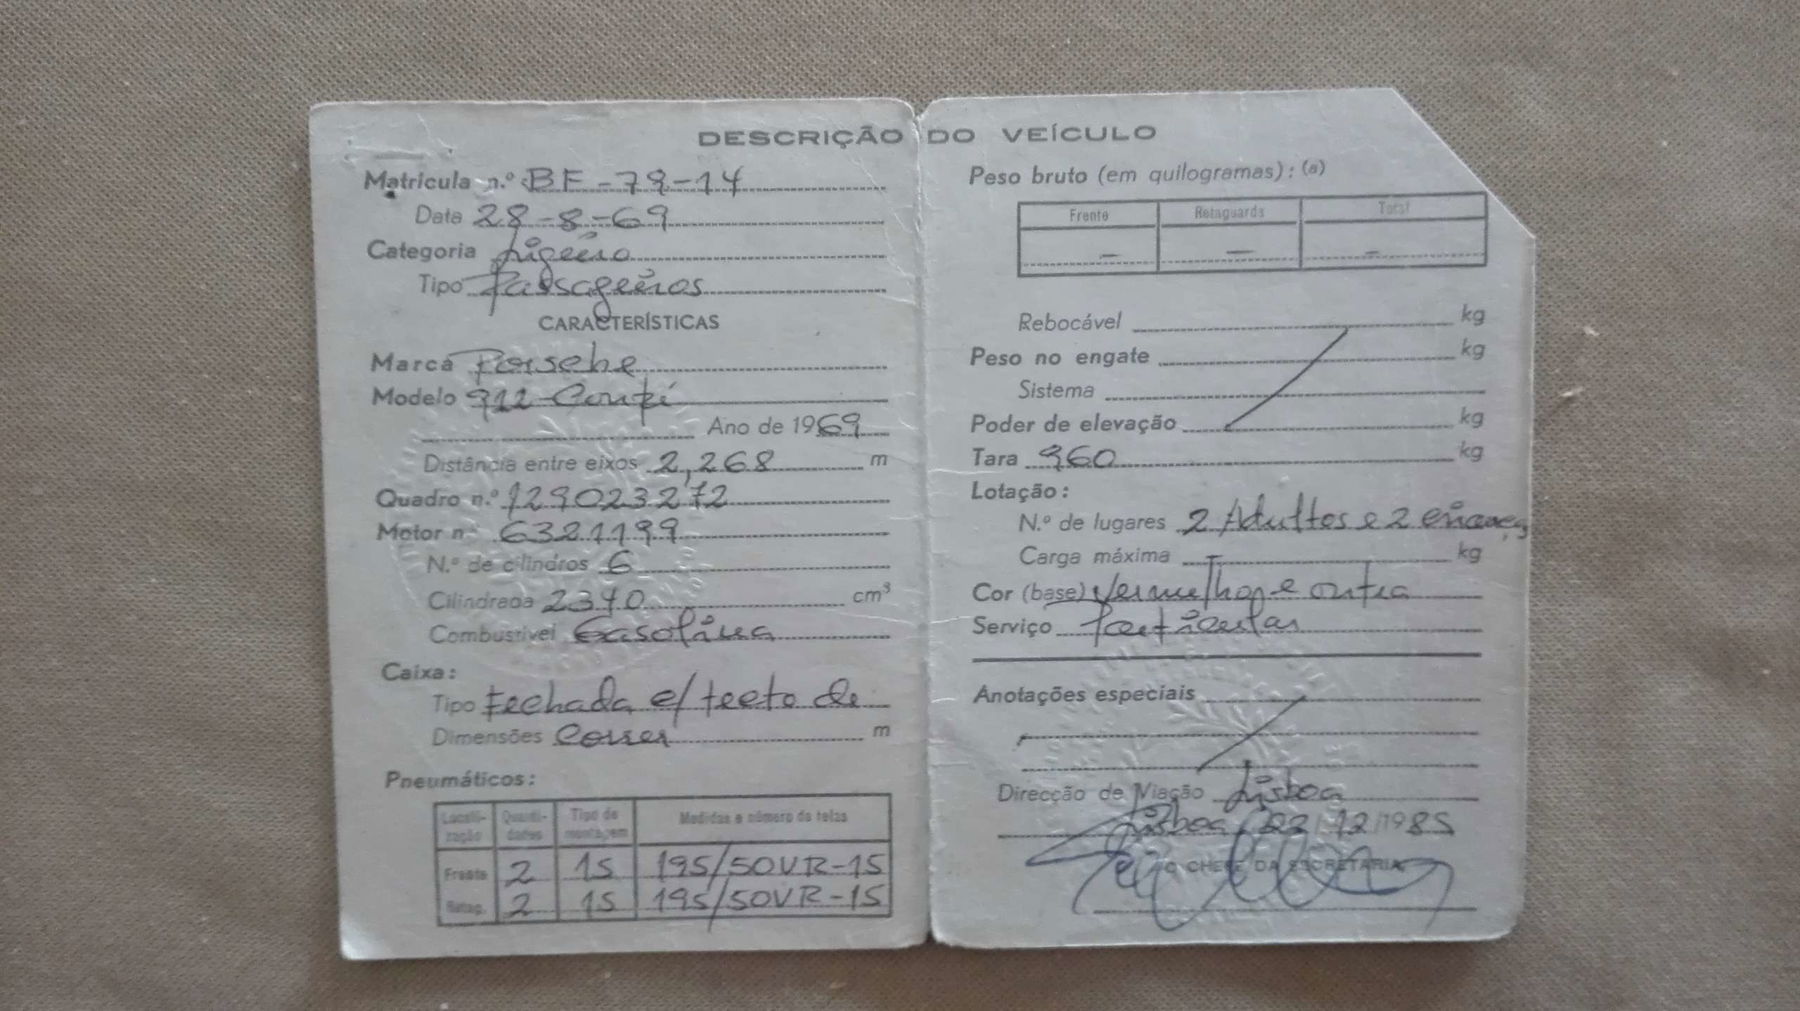 DESCRIÇÃO DO VEÍCULO
Matrícula n.º BF-79-14
Data 28-8-69
Categoria Ligeiro
Tipo Passageiros
CARACTERÍSTICAS
Marca Porsche
Modelo 912-Coupé
Ano de 1969
Distância entre eixos 2,268 m
Quadro n.º 129023272
Motor n.º 6321199
N.º de cilindros 6
Cilindrada 2340 cm³
Combustível Gasolina
Caixa:
Tipo Fechada c/ tecto de
Dimensões correr m
Pneumáticos:
Locali-zação Quanti-dades Tipo de montagem Medidas e número de telas
Frente 2 15 195/50VR-15
Retag. 2 15 195/50VR-15
Peso bruto (em quilogramas): (a)
Frente Retaguarda Total
– – –
Rebocável kg
Peso no engate kg
Sistema
Poder de elevação kg
Tara 960 kg
Lotação:
N.º de lugares 2 Adultos e 2 crianças
Carga máxima kg
Cor (base) Vermelho e outra
Serviço Particular
Anotações especiais
Direcção de Viação Lisboa
Lisboa, 22/12/1985
O CHEFE DA SECRETARIA